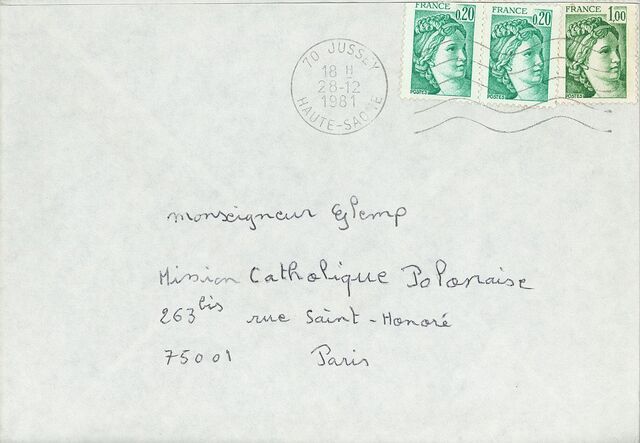 FRANCE 0,20
FRANCE 0,20
FRANCE 1,00
POSTES
POSTES
POSTES
70 JUSSEY
18 H
28-12
1981
HAUTE-SAONE
monseigneur Glemp
Mission Catholique Polonaise
263 bis rue Saint-Honoré
75001 Paris